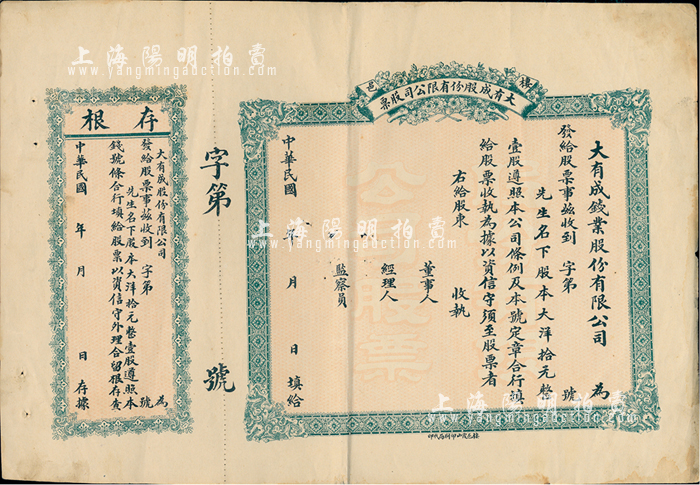 上海陽明拍賣
www.yangmingauction.com
邑
大有成股份有限公司股票
大有成錢業股份有限公司 為
發給股票事茲收到 字第 號
先生名下股本大洋拾元整
壹股遵照本公司條例及本號定章合行填
給股票收執為據以資信守須至股票者
右給股東 收執
董事人
經理人
監察員
中華民國 年 月 日 填給
公司股票
字第 號
存根
大有成股份有限公司 為
發給股票事茲收到 字第 號
先生名下股本大洋拾元整壹股遵照本
錢號條合行填給股票以資信守外理合留根存查
中華民國 年 月 日 存據
上海陽明拍賣
www.yangmingauction.com
上海陽明拍賣
www.yangmingauction.com
上海陽明拍賣
www.yangmingauction.com